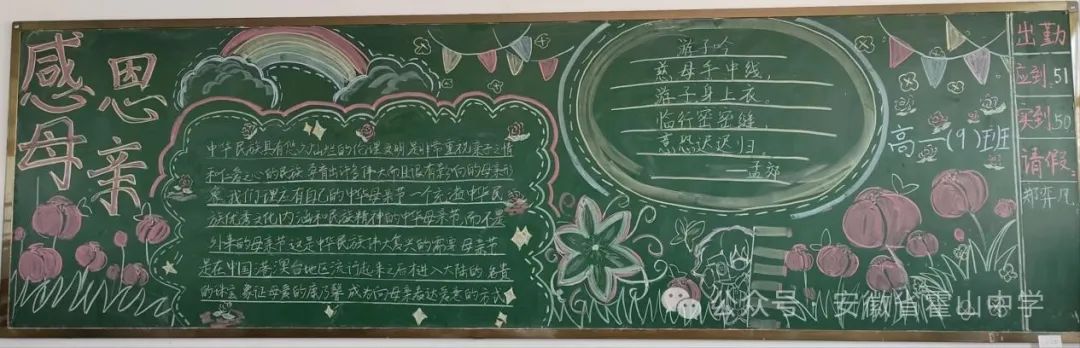 感恩
母亲
中华民族具有悠久灿烂的伦理文明是非常重视亲子之情
和仁爱之心的民族 孕育出许多伟大而且很有影响的母亲形
象 我们理应有自己的中华母亲节一个充满中华民
族优秀文化内涵和民族精神的中华母亲节,而不是
外来的母亲节 这是中华民族伟大复兴的需要 母亲节
是在中国港澳台地区流行起来之后才进入大陆的 名贵
的珠宝 象征母爱的康乃馨 成为向母亲表达爱意的方式
游子吟
慈母手中线,
游子身上衣。
临行密密缝,
意恐迟迟归。
—孟郊
高一(9)班
出勤
应到:51
实到:50
请假:
郑弈凡
公众号·安徽省霍山中学